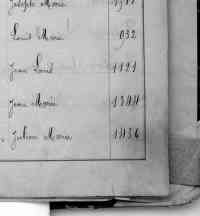 Joseph Marie
Louis Marie 932
Jean Louis 1121
Jean Marie
Julien Marie 1436